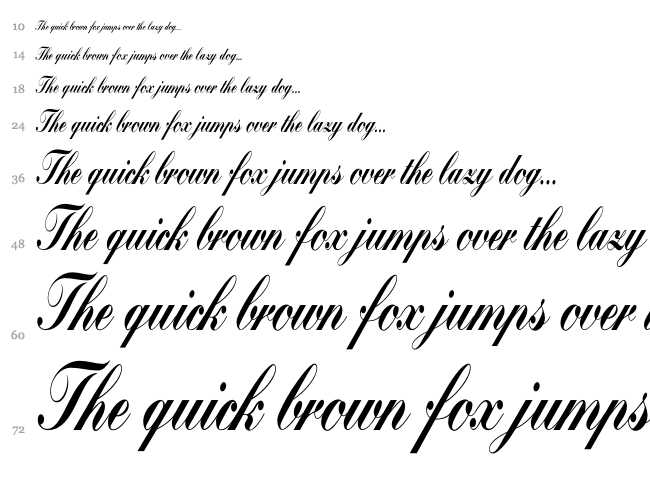 10 The quick brown fox jumps over the lazy dog...
14 The quick brown fox jumps over the lazy dog...
18 The quick brown fox jumps over the lazy dog...
24 The quick brown fox jumps over the lazy dog...
36 The quick brown fox jumps over the lazy dog...
48 The quick brown fox jumps over the lazy
60 The quick brown fox jumps over
72 The quick brown fox jumps